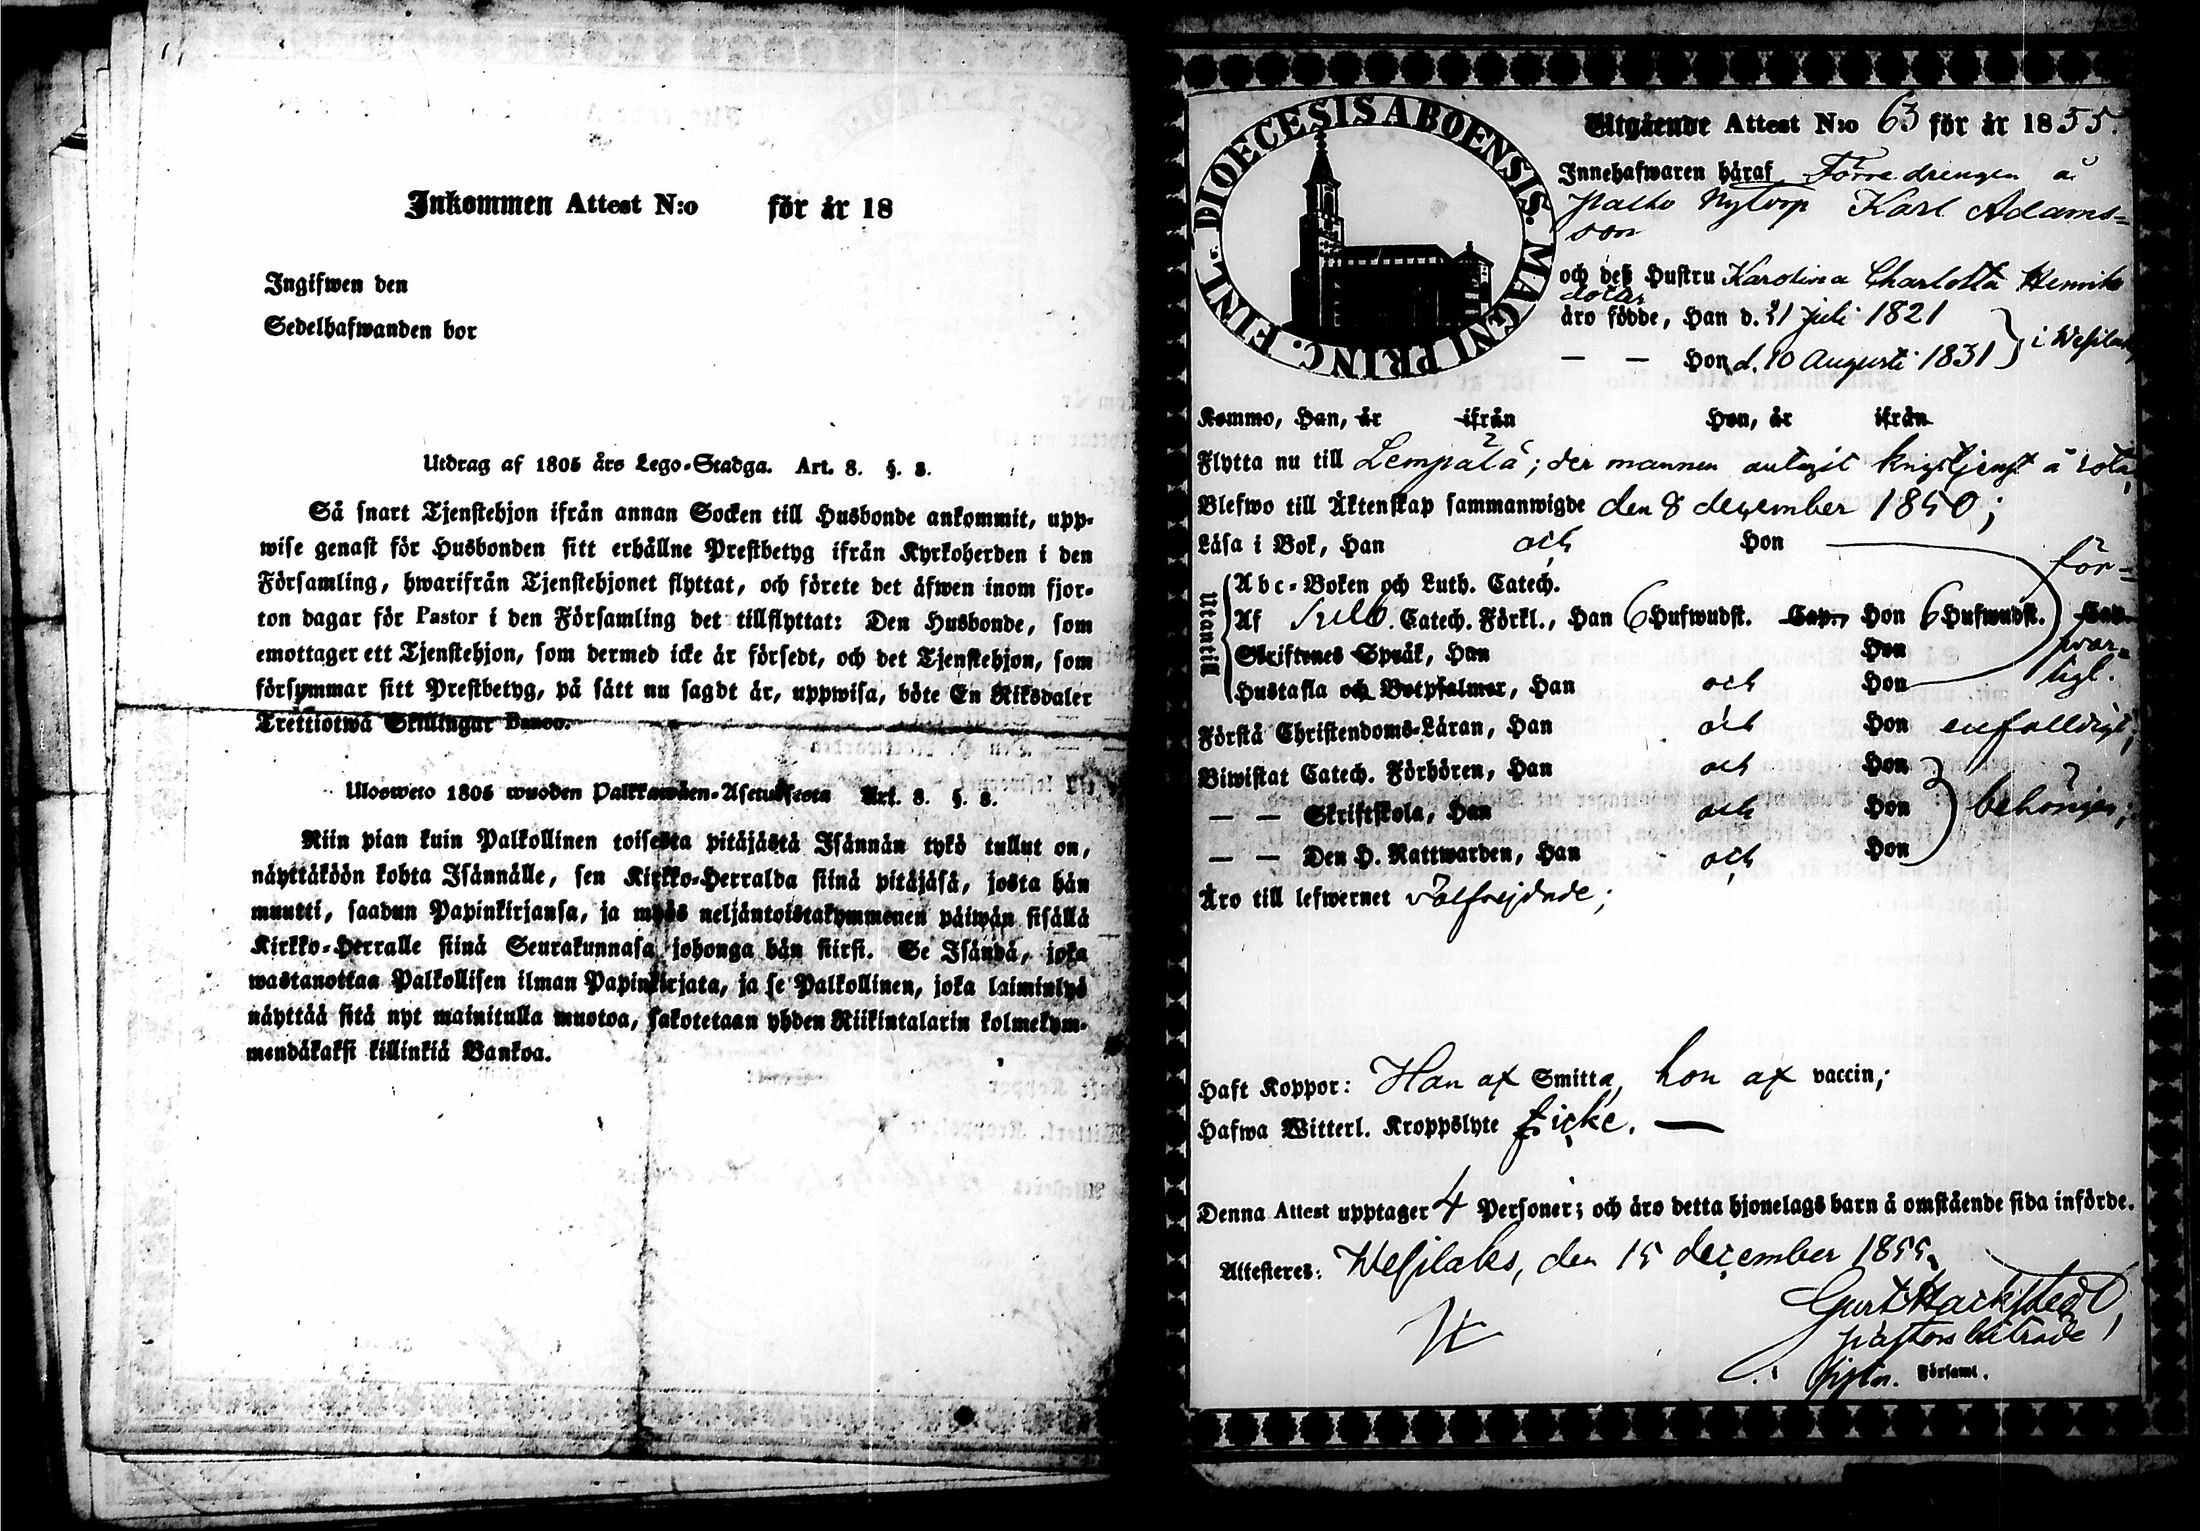 Inkommen Attest N:o för år 18
Ingifwen den
Sedelhafwanden bor
Utdrag af 1805 års Lego-Stadga. Art. 8. §. 8.
Så snart Tjenstehjon ifrån annan Socken till Husbonde ankommit, upp-
wise genast för Husbonden sitt erhållne Prestbetyg ifrån Kyrkoherden i den
Församling, hwarifrån Tjenstehjonet flyttat, och förete det äfwen inom fjor-
ton dagar för Pastor i den Församling det tillflyttat: Den Husbonde, som
emottager ett Tjenstehjon, som dermed icke är försedt, och det Tjenstehjon, som
försymmar sitt Prestbetyg, på sätt nu sagdt är, uppwisa, böte En Riksdaler
Trettiotwå Skillingar Banco.
Ulosweto 1805 wuoden Palkkawäen-Asetuksesta Art. 8. §. 8.
Niin pian kuin Palkollinen toisesta pitäjästä Isännän tykö tullut on,
näyttäköön kohta Isännälle, sen Kirkko-Herralda siinä pitäjäsä, josta hän
muutti, saadun Papinkirjansa, ja myös neljäntoistakymmenen päiwän sisällä
Kirkko-Herralle siinä Seurakunnasa johonga hän siirsi. Se Isändä, joka
wastanottaa Palkollisen ilman Papinkirjata, ja se Palkollinen, joka laiminlyö
näyttää sitä nyt mainitulla muotoa, sakotetaan yhden Riikintalarin kolmekym-
mendäkaksi killinkiä Bankoa.
DIOECESIS ABOENSIS. MAGNI PRINC. FINL.
Utgående Attest N:o 63 för år 1855.
Innehafwaren häraf Förre drengen å
Nytorp Karl Adams=
son
och deß Hustru Karolina Charlotta Henriks
dotter
äro födde, Han d. 21 juli 1821
— — Hon d. 10 Augusti 1831 } i Wesilaks
Kommo, Han, år ifrån Hon, år ifrån
Flytta nu till Lempälä; der mannen antagit krigstjenst å rota,
Blefwo till Äktenskap sammanwigde den 8 december 1850;
Läsa i Bok, Han och Hon för=
Utantill
Abc-Boken och Luth. Catech.
Af Catech. Förkl., Han 6 Hufwudst. Cap., Hon 6 Hufwudst. Cap.
Skriftenes Språk, Han Hon svar=
Hustafla och Botpsalmer, Han och Hon ligt.
Förstå Christendoms-Läran, Han och Hon enfalldigt;
Biwistat Catech. Förhören, Han och Hon
— — Skriftskola, Han och Hon behörigen;
— — Den H. Nattwarden, Han och Hon
Äro till lefwernet välfrejdade;
Haft Koppor: Han af Smitta, hon af vaccin;
Hafwa Witterl. Kroppslyte Ejcke. —
Denna Attest upptager 4 Personer; och äro detta hjonelags barn å omstående sida införde.
Attesteres: Wesilaks, den 15 december 1855.
Gust Hackstedt,
pastors biträde
i Församl.